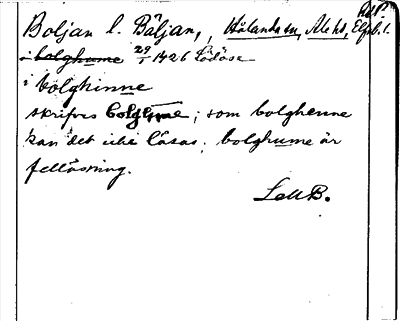 Boljan l. Bäljan, Hålanda sn, Ale hd, Elfsb. l.
i bolghume 29/1 1426 Lödöse
i bolghinne
skrifves bolghne; som bolghenne
kan det icke läsas; bolghume är
felläsning.